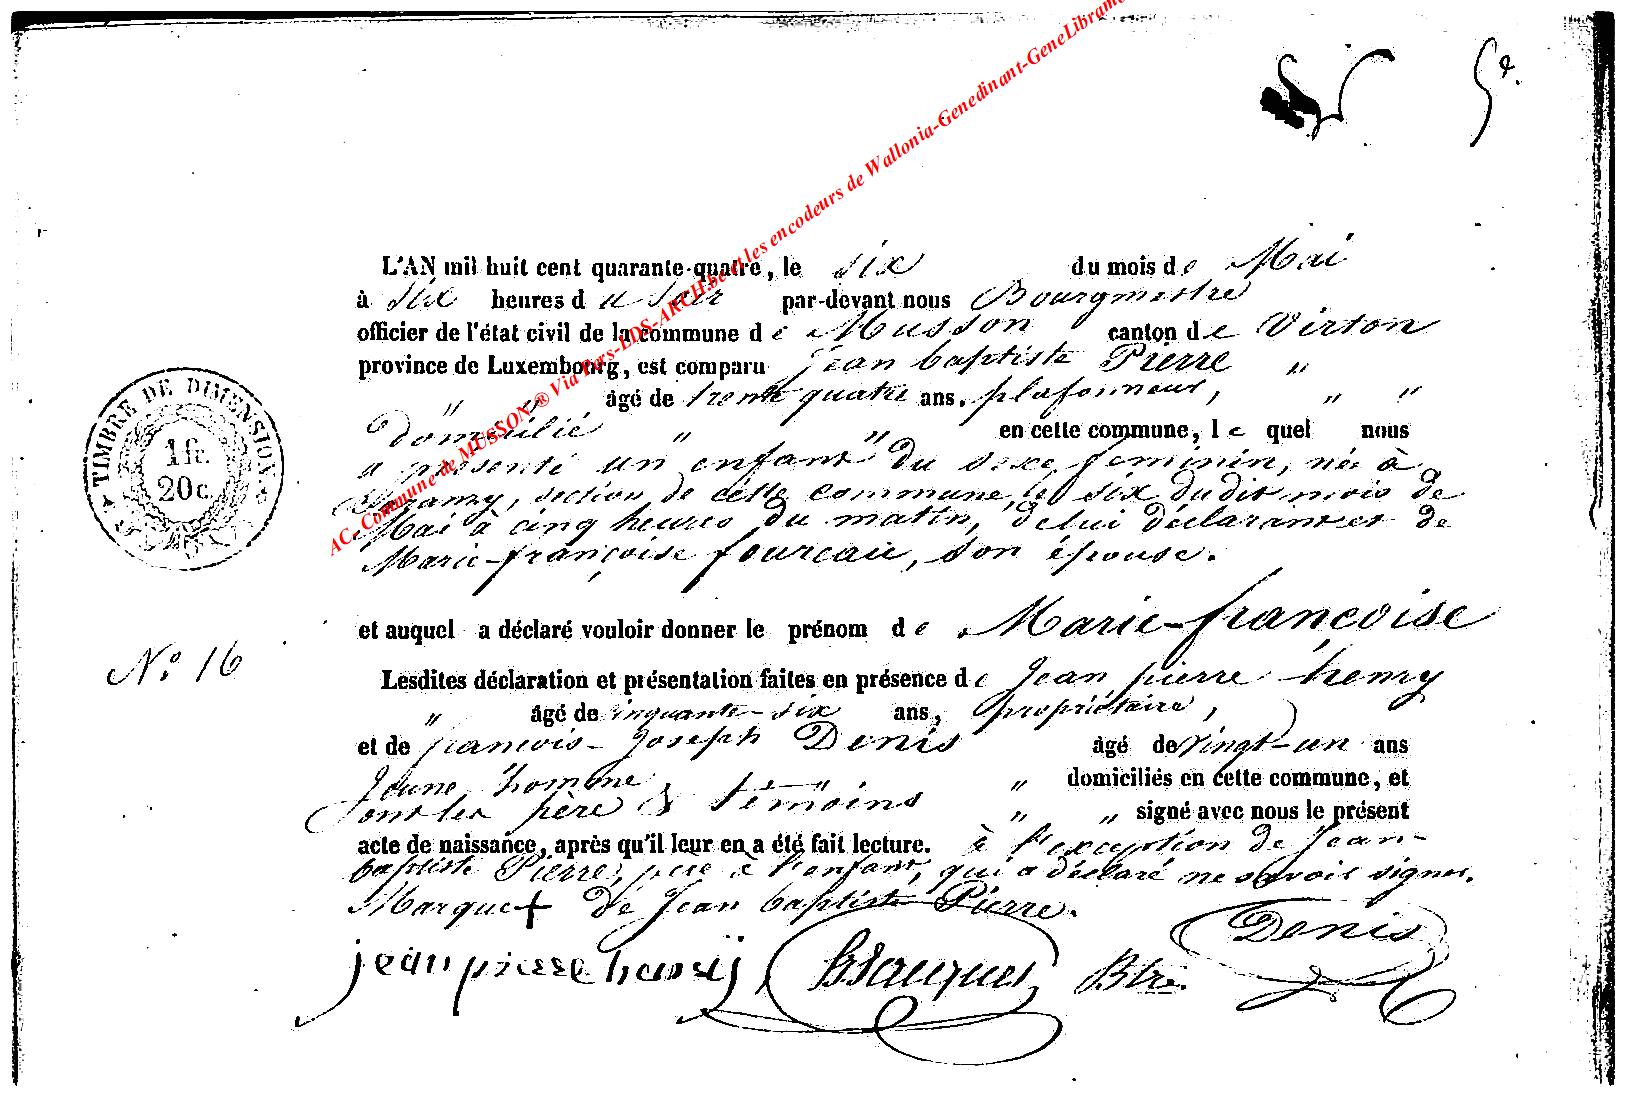 5e.
AC. Commune de MUSSON ® Via Pers-LDS-ARCH.be et les encodeurs de Wallonia-Genedinant-GeneLibramo
L'AN mil huit cent quarante-quatre, le six du mois de Mai
à Six heures du Soir par-devant nous Bourgmestre
officier de l'état civil de la commune de Musson canton de Virton
province de Luxembourg, est comparu Jean baptiste Pierre "
" " âgé de trente quatre ans, plafonneur, " "
Domicilié " " en cette commune, le quel nous
a présenté un enfant du sexe feminin, née à
section de cette commune, le six dudit mois de
Mai à cinq heures du matin, de lui déclarant et de
Marie-françoise foureau, son épouse.
et auquel a déclaré vouloir donner le prénom de Marie-françoise
Lesdites déclaration et présentation faites en présence de Jean pierre henry
" âgé de cinquante-six ans, propriétaire,
et de francois-Joseph Denis âgé de vingt-un ans
Jeune homme, " " domiciliés en cette commune, et
ont les père & témoins " " signé avec nous le présent
acte de naissance, après qu'il leur en a été fait lecture. à l'exception de Jean-
baptiste Pierre, père à l'enfant, qui a déclaré ne savoir signer.
Marque + de Jean baptiste Pierre.
jean pierre henry Btre. Denis
TIMBRE DE DIMENSION.
1 fr.
20 c.
No. 16